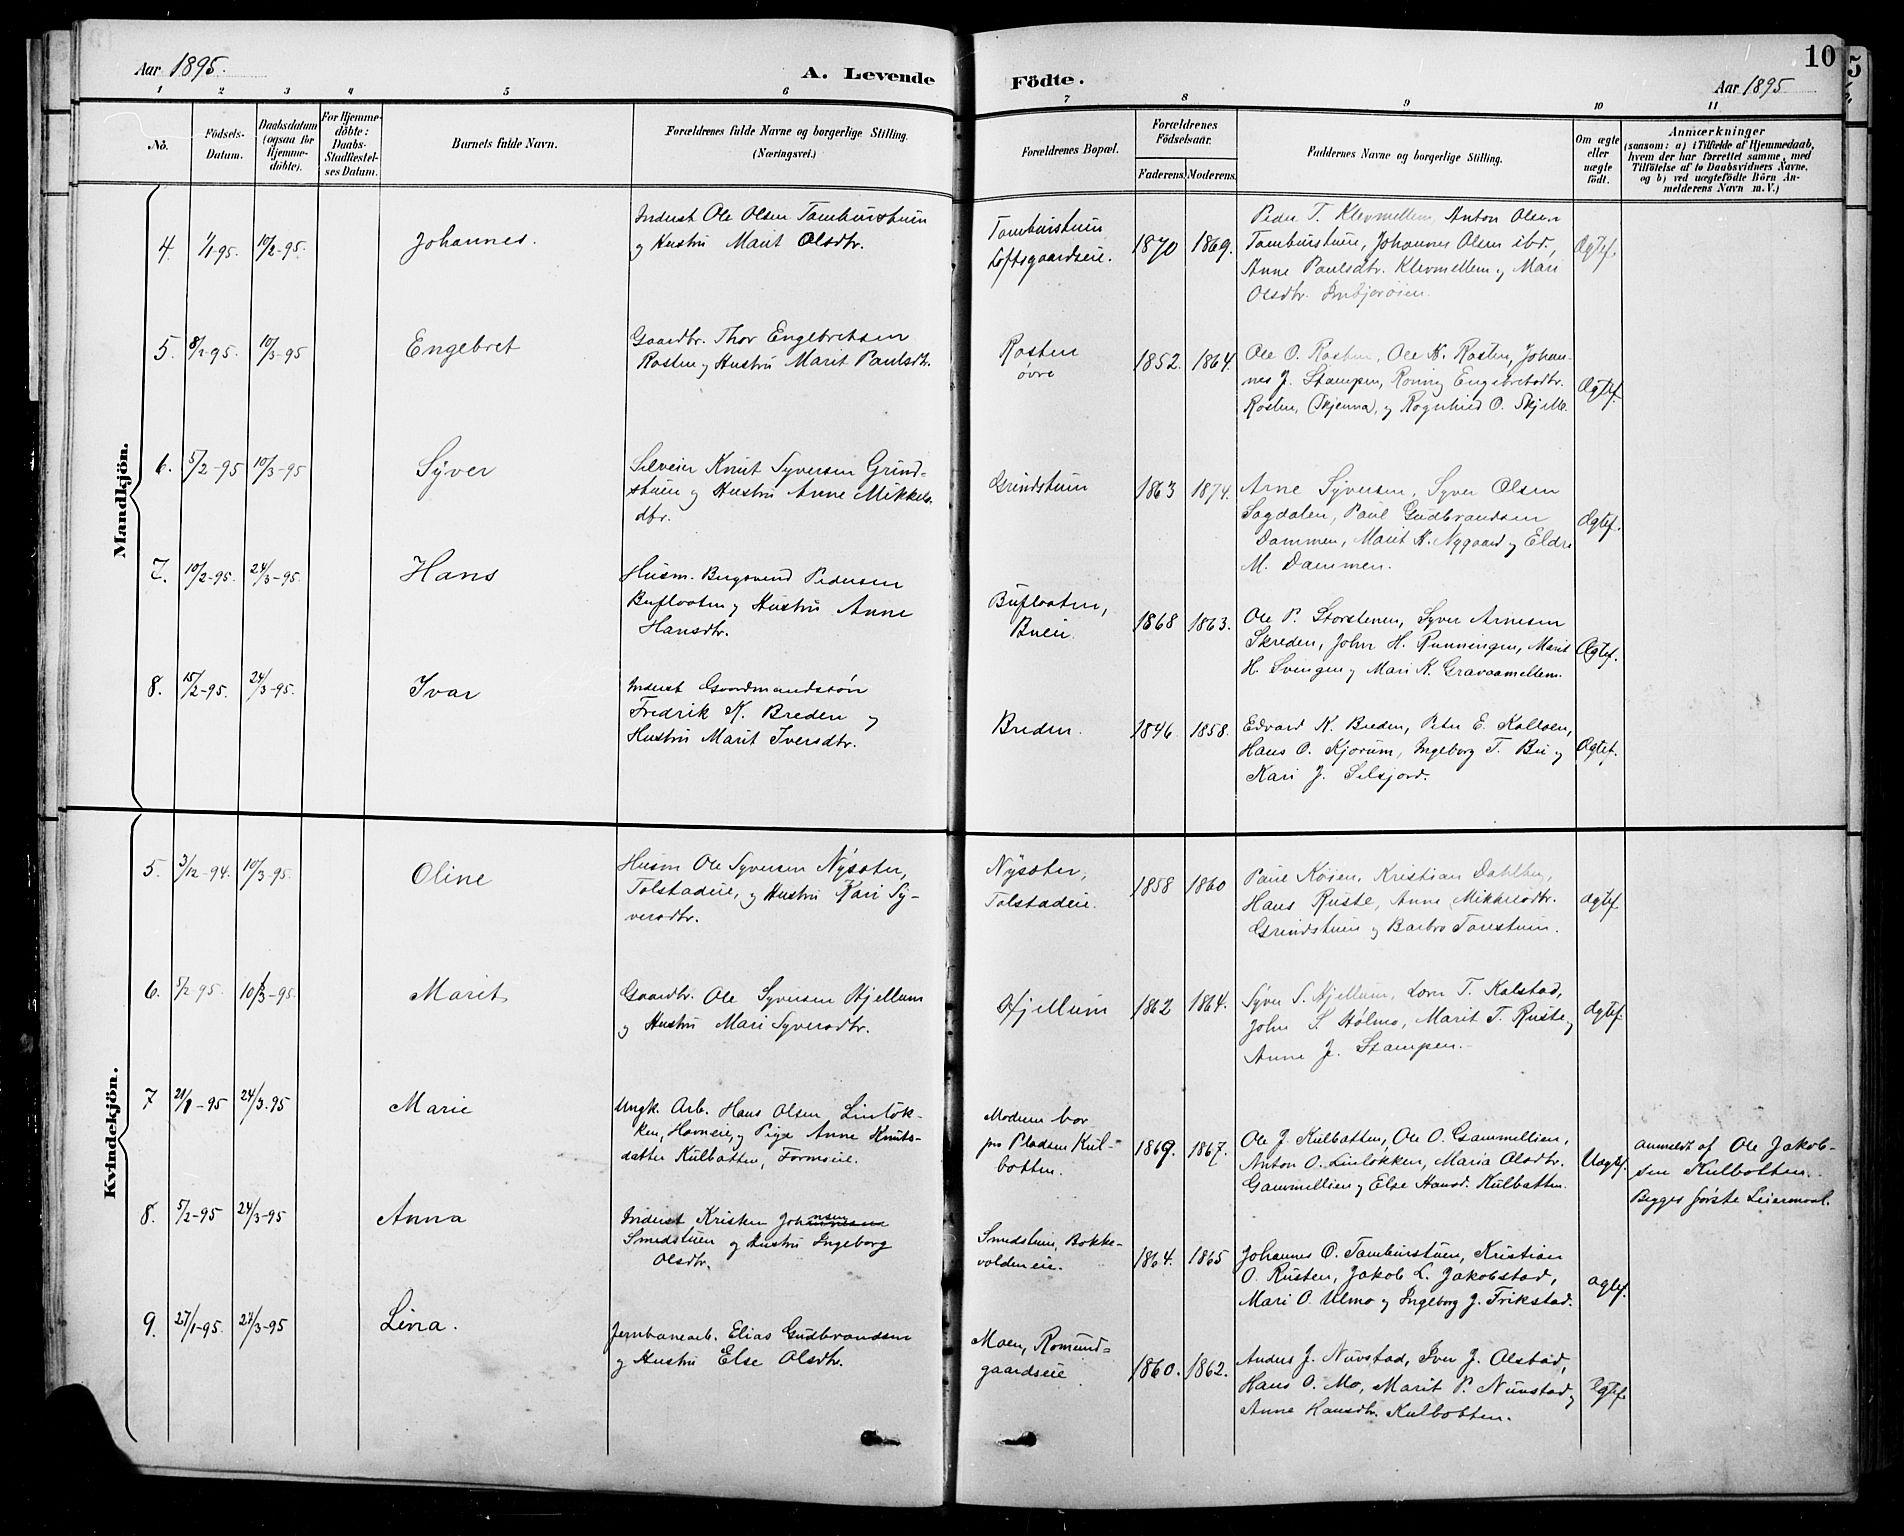 Aar 1895.
A. Levende
Födte.
10
Aar 1895
1 2 3 4 5 6 7 8 9 10 11
No.
Födsels-
Datum.
Daabsdatum
(ogsaa for
Hjemme-
döbte).
For Hjemme-
döbte:
Daabs-
Stadfæstel-
ses Datum.
Barnets fulde Navn.
Forældrenes fulde Navne og borgerlige Stilling.
(Næringsvei.)
Forældrenes Bopæl.
Forældrenes
Födselsaar.
Faderens. Moderens.
Faddernes Navne og borgerlige Stilling.
Om ægte
eller
uægte
födt.
Anmærkninger
(saasom: a) i Tilfælde af Hjemmedaab,
hvem der har forrettet samme, med
Tilföielse af to Daabsvidners Navne,
og b) ved uægtefödte Börn An-
melderens Navn m. V.)
Mandkjön.
4. 1/1-95. 10/2-95. Johannes.
Inderst Ole Olsen Tamburstuen
og Hustru Marit Olsdtr.
Tamburstuen
Loftsgaardseie.
1870 1869.
Peder T. Klevmellem, Anton Olsen
Tamburstuen, Johannes Olsen ibd.,
Anne Paulsdtr. Klevmellem og Mari
Olsdtr.
Ægtef.
5. 8/2-95. 10/3-95 Engebret
Gaardbr. Thor Engebretsen
Rosten og Hustru Marit Paulsdtr.
Rosten
øvre
1852. 1864.
Ole O. Rosten, Ole K. Rosten, Johan-
nes J. Stampen, Rønnig Engebretsdtr.
Rosten, (Skjenna), og Rognhild O. Skjelle.
Ægtef.
6. 5/2-95 10/3-95 Syver
Selveier Knut Syversen Grind-
stuen og Hustru Anne Mikkels-
dtr.
Grindstuen
1863 1874.
Arne Syversen, Syver Olsen
Sagdalen, Paul Gudbrandsen
Dammen, Marit K. Nygaard og Eldri
M. Dammen.
Ægtef.
7. 10/2-95. 24/3-95. Hans
Husm. Bergsvend Pedersen
Bufloaten og Hustru Anne
Hansdtr.
Bufloaten,
Bueie.
1868 1863.
Ole P. Storstenen, Syver Arnesen
Skreden, John H. Runningen, Marit
H. Svingen og Mari K. Gravaamellem.
Ægtef.
8. 15/2-95. 24/3-95. Ivar
Inderst Gaardmandssøn
Fredrik K. Breden og
Hustru Marit Iversdtr.
Breden.
1846. 1858.
Edvard K. Breden, Peter E. Kaloen,
Hans O. Kjorum, Ingeborg T. Bu og
Kari J. Selsjord.
Ægtef.
Kvindekjön.
5. 3/12-94. 10/3-95. Oline
Husm Ole Syversen Nysæter,
Tolstadeie, og Hustru Kari Sy-
versdtr.
Nysæter,
Tolstadeie.
1858 1860
Paul Køien, Kristian Dahlberg,
Hans Ruste, Anne Mikkelsdtr.
Grindstuen og Barbro Torestuen.
Ægtef.
6. 5/2-95. 10/3-95. Marit
Gaardbr. Ole Syversen Hjellum
og Hustru Mari Syversdtr.
Hjellum
1862 1864.
Syver S. Hjellum, Lars T. Kalstad,
John S. Hølmo, Marit T. Ruste og
Anne J. Stampen.
Ægtef.
7 21/1-95 24/3-95 Marie
Ungk. Arb. Hans Olsen Linløk-
ken, Havneie, og Pige Anne Knuts-
datter Kulbotten, Formoeie.
Moderen bor
paa Pladsen Kul-
botten.
1869. 1867.
Ole J. Kulbotten, Ole O. Gammellien,
Anton O. Linløkken, Maria Olsdtr.
Gammellien og Else Hansd. Kulbotten.
Uægtef.
anmeldt af Ole Jakob-
sen Kulbotten.
Begges første Leiermaal.
8. 5/2-95 24/3-95 Anna
Inderst Kristen Johansen
Smedstuen og Hustru Ingeborg
Olsdtr.
Smedstuen, Bokke-
voldeneie.
1864. 1865
Johannes O. Tamburstuen, Kristian
O. Rusten, Jakob L. Jakobstad,
Mari O. Ulmo og Ingeborg J. Frikstad.
Ægtef.
9. 27/1-95. 24/3-95 Lina.
Jernbanearb. Elias Gudbrandsen
og Hustru Else Olsdtr.
Moen, Romund-
gaardseie
1860. 1862.
Anders J. Nuvstad, Iver J. Olstad,
Hans O. Mo, Marit P. Nuvstad og
Anne Hansdtr. Kulbotten.
Ægtef.